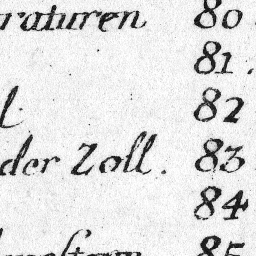 raturen 80
81.
l 82
der Zoll. 83
84
85